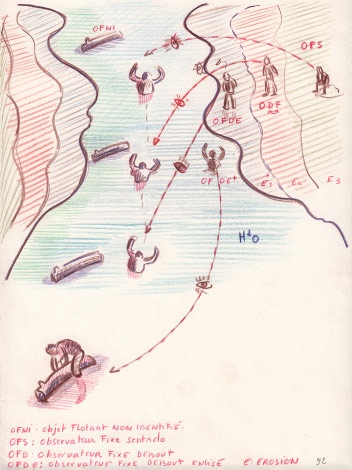 OFNI
OFS
ODF
OFDE
OFDE+
E1 E2 E3
H²O
OFNI · Objet Flotant NON IDENTIFIÉ.
OFS : Observateur Fixe sentado
OFD : Observateur Fixe DEBOUT
OFDe : Observateur FIXE DEBOUT ENLISÉ E : EROSION 92